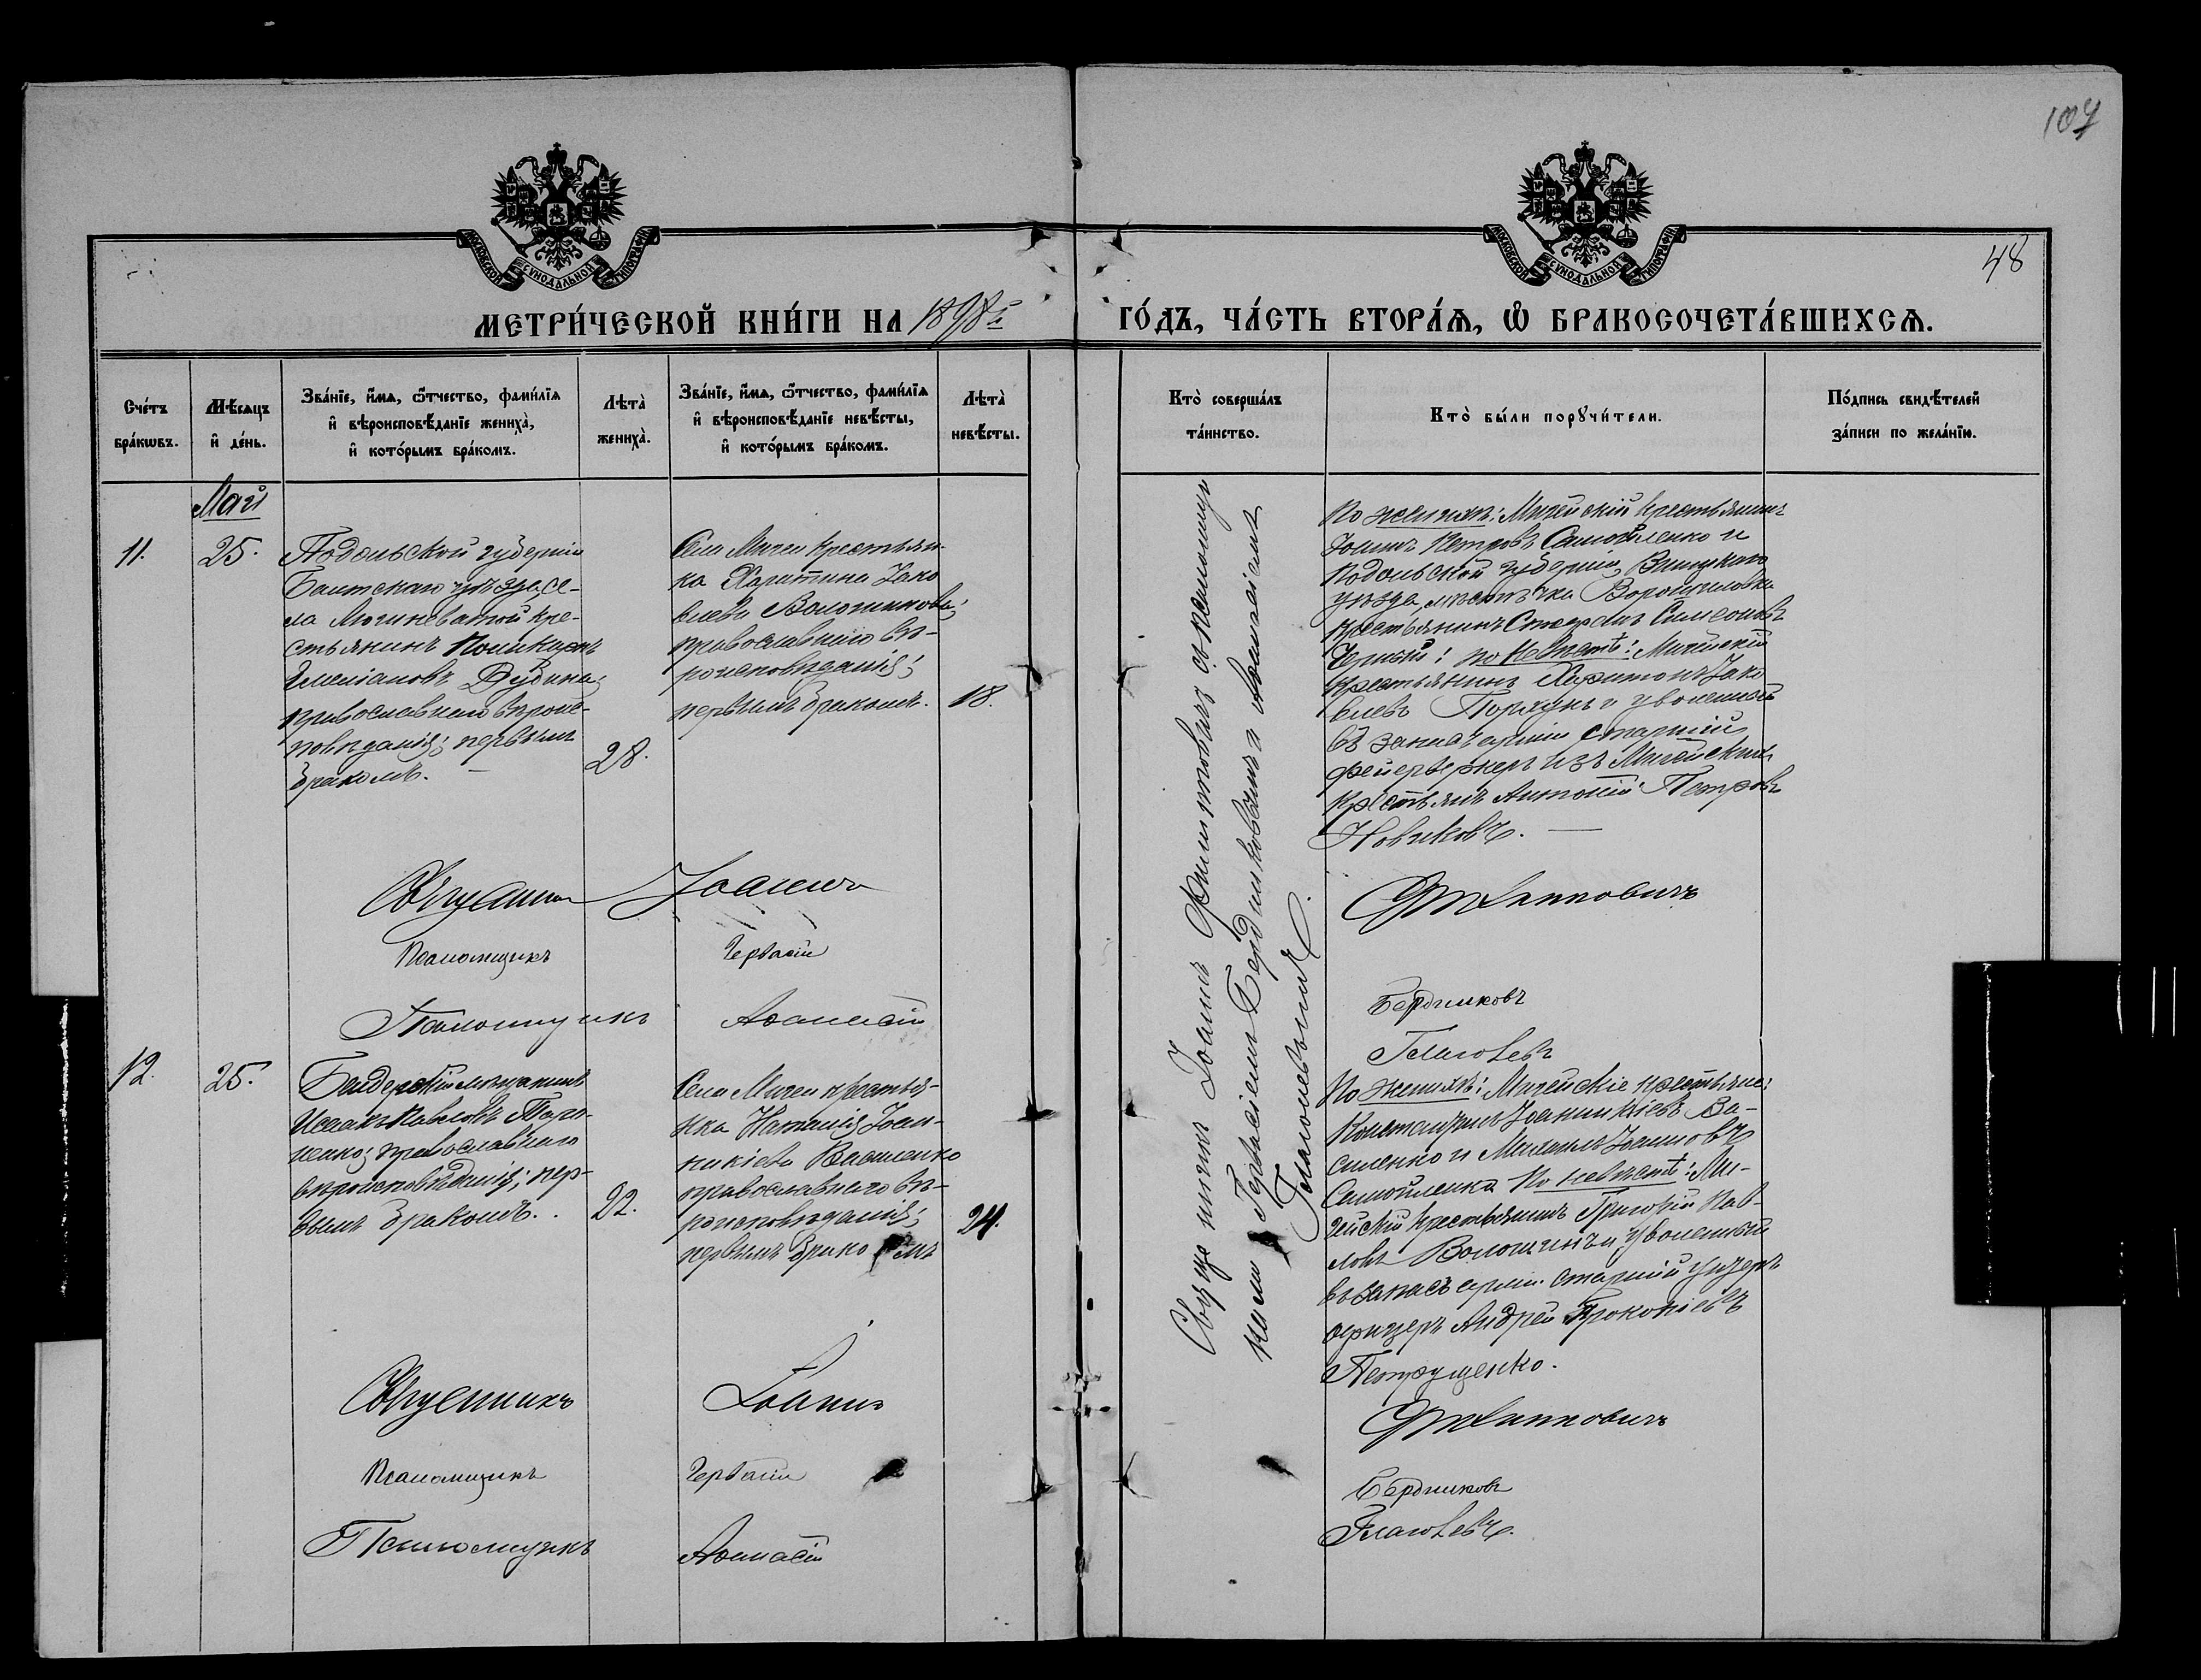 107
48
МОСКОВСКОЙ СУНОДАЛЬНОЙ ТИПОГРАФІИ
МОСКОВСКОЙ СУНОДАЛЬНОЙ ТИПОГРАФІИ
МЕТРИ́ЧЕСКОЙ КНИ́ГИ НА 1898й ГО́ДЪ, ЧА́СТЬ ВТОРА́Ѧ, Ѽ БРАКОСОЧЕТА́ВШИХСѦ.
Сче́тъ бра́кѡвъ.
Мѣ́сѧцъ и҆ де́нь.
Зва́нїе, и҆́мѧ, ѻ҆́тчество, фамилі́ѧ
и҆ вѣроисповѣ́данїе жениха̀,
и҆ кото́рымъ бра́комъ.
Лѣта̀ жениха̀.
Зва́нїе, и҆́мѧ, ѻ҆́тчество, фамилі́ѧ
и҆ вѣроисповѣ́данїе невѣ́сты,
и҆ кото́рымъ бра́комъ.
Лѣта̀ невѣ́сты.
Кто̀ соверша́лъ та́инство.
Кто̀ бы́ли порꙋчи́тели.
По́дпись свидѣ́телей за́писи по жела́нїю.
Май
11.
25.
Подольской губерніи
Балтскаго уѣзда, се-
ла Могиневатой кре-
стьянинъ Поликарпъ
Емеліановъ Дудика;
православнаго вѣроис-
повѣданія; первымъ
бракомъ. —
28.
Села Мигеи крестьян-
ка Харитина Іако
влева Волошинова;
православнаго вѣ-
роисповѣданія;
первымъ бракомъ.
18.
Священникъ Іоаннъ Филипповичъ съ псаломщи
ками Гервасіемъ Бердниковымъ и Аѳанасіемъ
По женихѣ: Мигейскій крестьянинъ
Іоаннъ Петровъ Самойленко и
Подольской губерніи, Винницкаго
уѣзда, мѣстечка Ворошиловки
крестьянинъ Стефанъ Симеоновъ
Черный; по невѣстѣ: Мигейскій
крестьянинъ Харитонъ Іако
влевъ Порхунъ и уволенный
въ запасъ арміи старшій
фейерверкеръ изъ Мигейскихъ
крестьянъ Антоній Петровъ
Новиковъ. —
Священникъ Іоаннъ Филипповичъ
Псаломщикъ Гервасій Бердниковъ
Псаломщикъ Аѳанасій
12.
25.
Бендерскій мѣщанинъ
Исаакъ Павловъ
православнаго
вѣроисповѣданія; пер-
вымъ бракомъ.
22.
Села Мигеи крестья-
нка Наталія Іоан-
никіева Василенко
православнаго вѣ-
роисповѣданія;
первымъ бракомъ
24.
По женихѣ: Мигейскіе крестьяне:
Константинъ Іоанникіевъ Ва-
силенко и Михаилъ Іоанновъ
Самойленко По невѣстѣ: Ми-
гейскій крестьянинъ Григорій Пав-
ловъ Волошинъ и уволенный
въ запасъ арміи старшій унтеръ
офицеръ Андрей Прокопіевъ
Петрущенко.
Священникъ Іоаннъ Филипповичъ
Псаломщикъ Гервасій Бердниковъ
Псаломщикъ Аѳанасій